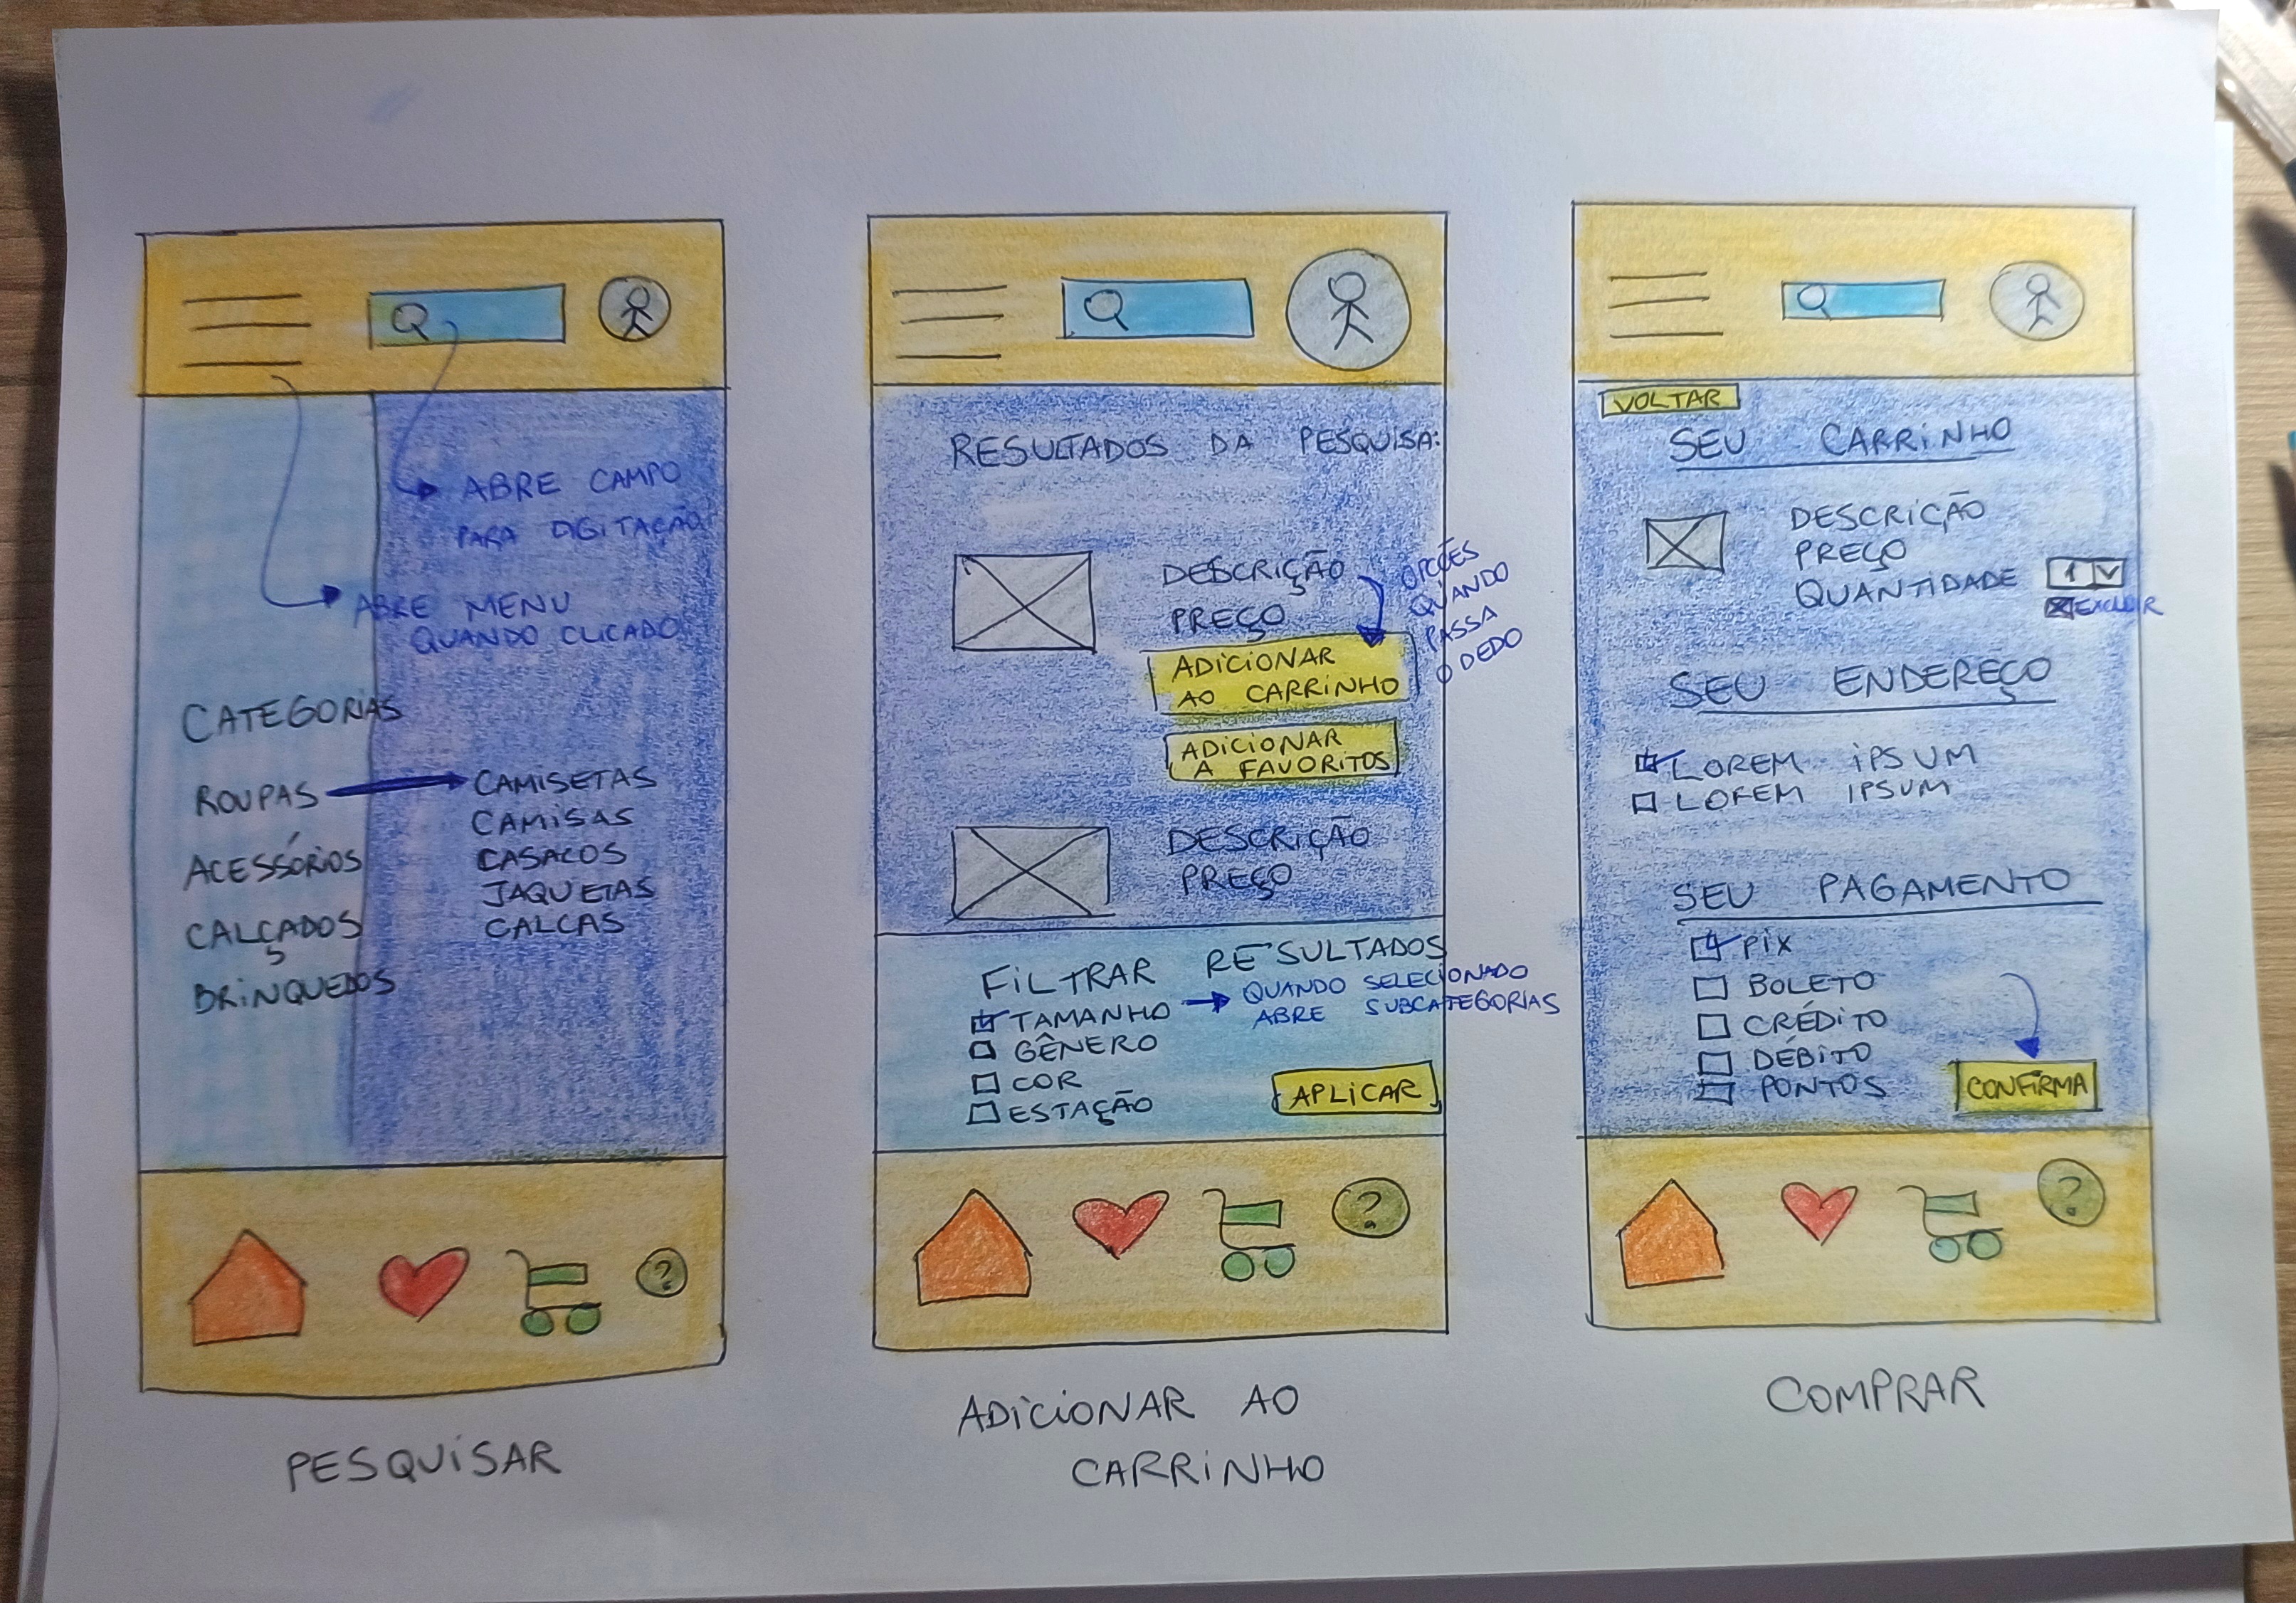 ABRE CAMPO
PARA DIGITAÇÃO
ABRE MENU
QUANDO CLICADO
CATEGORIAS
ROUPAS
ACESSÓRIOS
CALÇADOS
BRINQUEDOS
CAMISETAS
CAMISAS
CASACOS
JAQUETAS
CALCAS
?
PESQUISAR
RESULTADOS DA PESQUISA:
DESCRIÇÃO
PREÇO
OPÇÕES
QUANDO
PASSA
O DEDO
ADICIONAR
AO CARRINHO
ADICIONAR
A FAVORITOS
DESCRIÇÃO
PREÇO
FILTRAR RESULTADOS
TAMANHO
QUANDO SELECIONADO
ABRE SUBCATEGORIAS
GÊNERO
COR
ESTAÇÃO
APLICAR
?
ADICIONAR AO
CARRINHO
VOLTAR
SEU CARRINHO
DESCRIÇÃO
PREÇO
QUANTIDADE 1
EXCLUIR
SEU ENDEREÇO
LOREM IPSUM
LOREM IPSUM
SEU PAGAMENTO
PIX
BOLETO
CRÉDITO
DÉBITO
PONTOS
CONFIRMA
?
COMPRAR